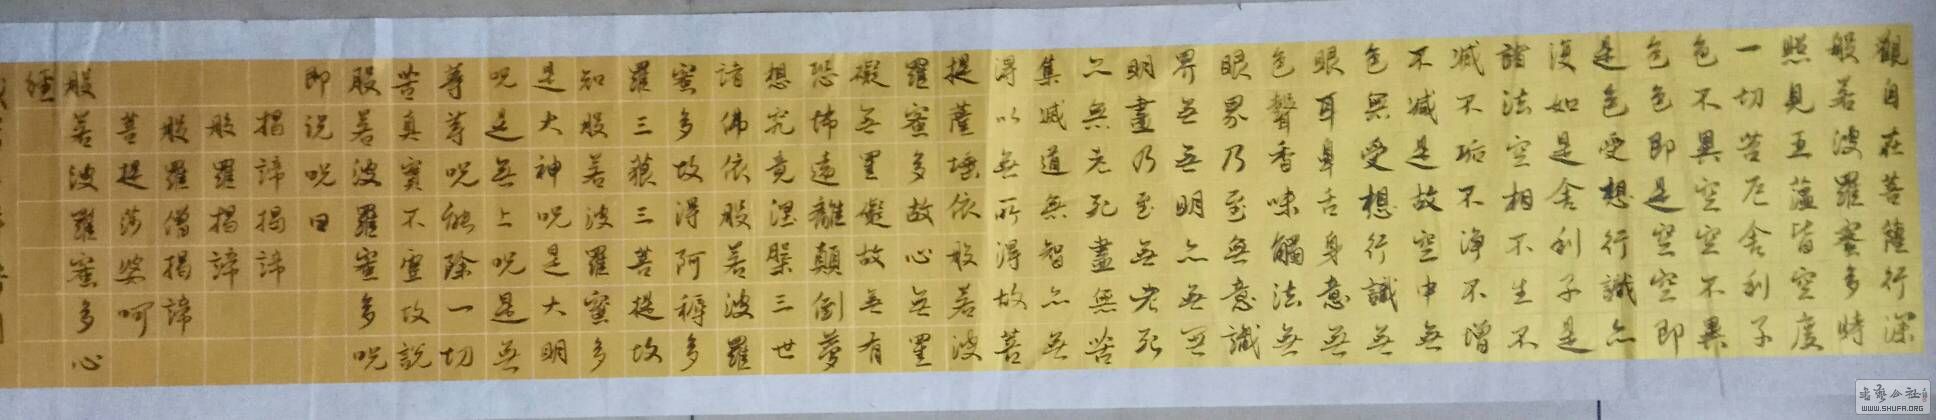 觀自在菩薩行深
般若波羅蜜多時
照見五蘊皆空度
一切苦厄舍利子
色不異空空不異
色色即是空空即
是色受想行識亦
復如是舍利子是
諸法空相不生不
滅不垢不淨不增
不減是故空中無
色無受想行識無
眼耳鼻舌身意無
色聲香味觸法無
眼界乃至無意識
界无无明亦无无
明盡乃至无老死
亦無老死盡無苦
集滅道無智亦無
得以無所得故菩
提薩埵依般若波
羅蜜多故心無罣
礙无罣礙故无有
恐怖遠離顛倒夢
想究竟涅槃三世
諸佛依般若波羅
蜜多故得阿耨多
羅三藐三菩提故
知般若波羅蜜多
是大神呪是大明
呪是无上呪是無
等等呪能除一切
苦真實不虛故說
般若波羅蜜多呪
即說呪曰
揭諦揭諦
般羅揭諦
般羅僧揭諦
菩提莎婆呵
般若波羅蜜多心
經
WWW.SHUFA.ORG